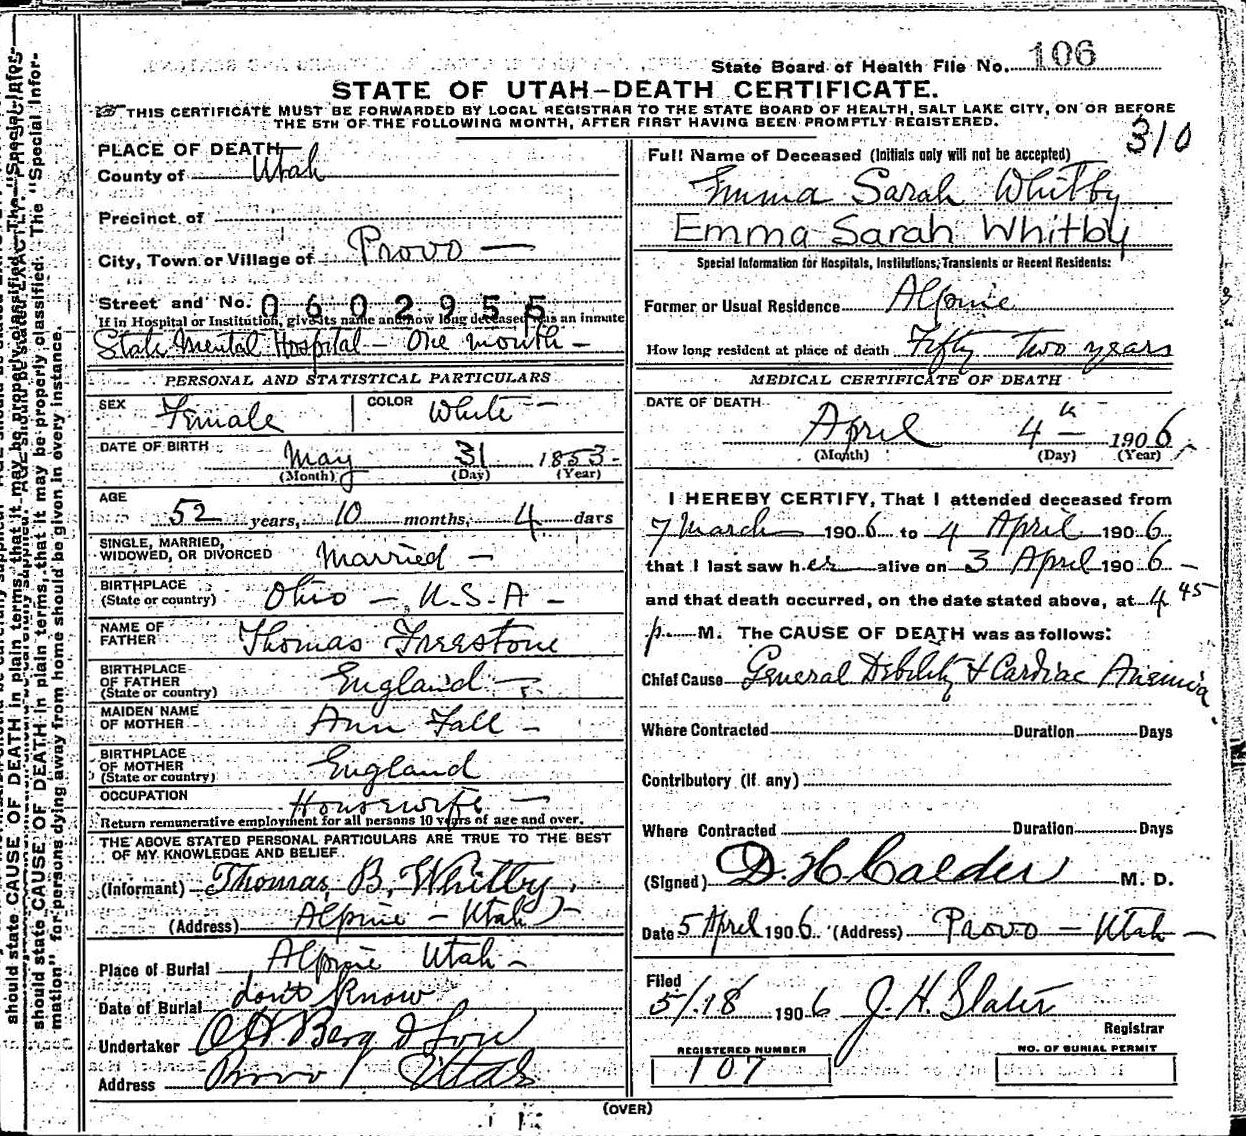 State Board of Health File No. 106
STATE OF UTAH—DEATH CERTIFICATE.
THIS CERTIFICATE MUST BE FORWARDED BY LOCAL REGISTRAR TO THE STATE BOARD OF HEALTH, SALT LAKE CITY, ON OR BEFORE
THE 5TH OF THE FOLLOWING MONTH, AFTER FIRST HAVING BEEN PROMPTLY REGISTERED.
310
PLACE OF DEATH
County of Utah
Precinct of
City, Town or Village of Provo —
Street and No. 0602955
If in Hospital or Institution, give its name and how long deceased was an inmate
State Mental Hospital — One month —
PERSONAL AND STATISTICAL PARTICULARS
SEX Female COLOR White —
DATE OF BIRTH May 31 1853 -
(Month) (Day) (Year)
AGE
52 years, 10 months, 4 days
SINGLE, MARRIED,
WIDOWED, OR DIVORCED Married —
BIRTHPLACE
(State or country) Ohio — U.S.A —
NAME OF
FATHER Thomas Freestone
BIRTHPLACE
OF FATHER
(State or country) England —
MAIDEN NAME
OF MOTHER Ann Fall —
BIRTHPLACE
OF MOTHER
(State or country) England
OCCUPATION Housewife —
Return remunerative employment for all persons 10 years of age and over.
THE ABOVE STATED PERSONAL PARTICULARS ARE TRUE TO THE BEST
OF MY KNOWLEDGE AND BELIEF
(Informant) Thomas B. Whitby
(Address) Alpine — Utah —
Place of Burial Alpine Utah —
Date of Burial don't know
Undertaker O.H. Berg & Son
Address Provo Utah
Full Name of Deceased (Initials only will not be accepted)
Emma Sarah Whitby
Emma Sarah Whitby
Special Information for Hospitals, Institutions, Transients or Recent Residents:
Former or Usual Residence Alpine
How long resident at place of death Fifty Two years
MEDICAL CERTIFICATE OF DEATH
DATE OF DEATH
April 4th 1906
(Month) (Day) (Year)
I HEREBY CERTIFY, That I attended deceased from
7 March 1906 to 4 April 1906
that I last saw her alive on 3 April 1906 —
and that death occurred, on the date stated above, at 4 45
p. M. The CAUSE OF DEATH was as follows:
Chief Cause General Debility & Cardiac Anemia
Where Contracted Duration Days
Contributory (if any)
Where Contracted Duration Days
(Signed) D. H. Calder M. D.
Date 5 April 1906 (Address) Provo — Utah —
Filed
5/18 1906 J. H. Slater
Registrar
REGISTERED NUMBER
107
NO. OF BURIAL PERMIT
(OVER)
should state CAUSE OF DEATH in plain terms, that it may be properly classified. The "Special Infor-
mation" for persons dying away from home should be given in every instance.